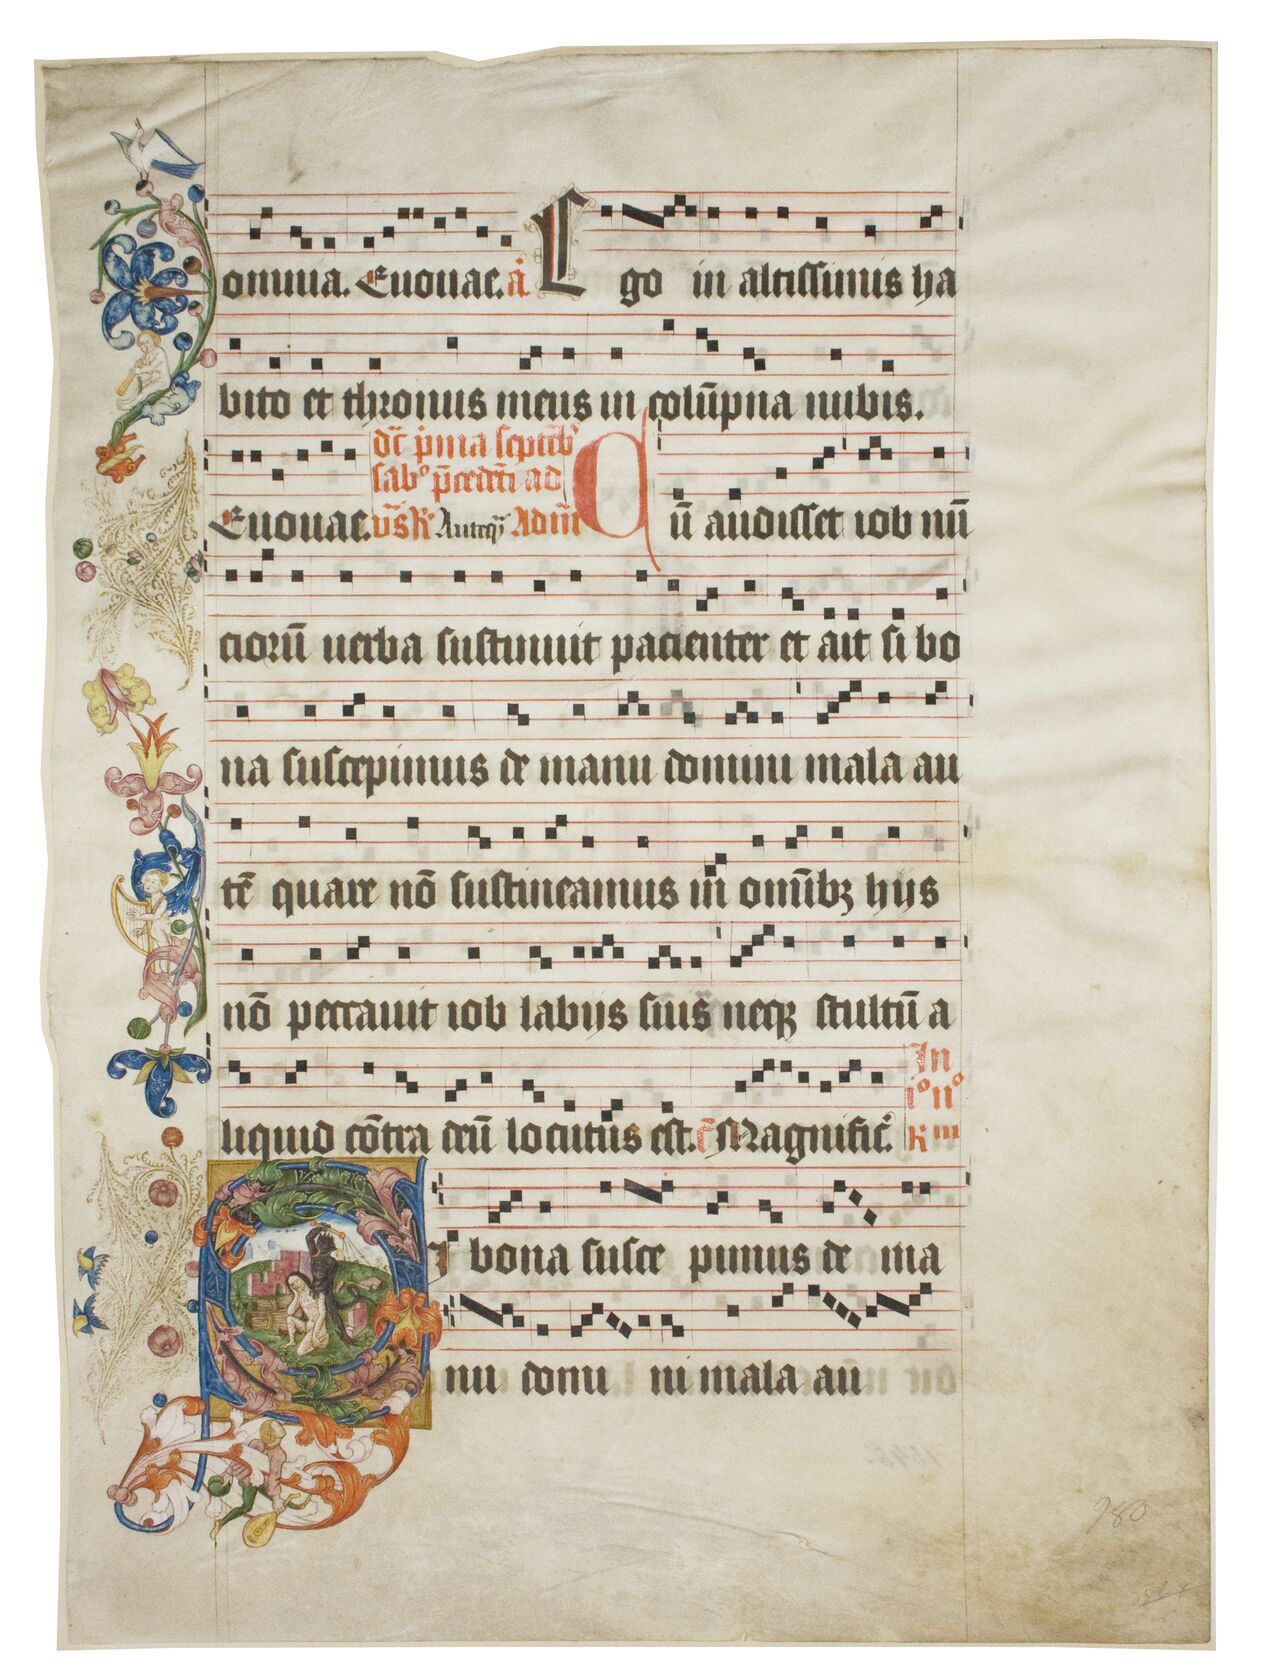 omnia. Euouae. a͞ Ego in altissimis ha
bito et thronus meus in colu̅pna nubis.
Euouae.
Dc̅ p̅ma septe̅b̅
sab° p̅cede̅ti ad
v̅s R̅ Adm̅
Cu̅ audisset iob nu̅
cioru̅ uerba sustinuit pacienter et ait si bo
na suscepimus de manu domini mala au
te̅ quare no̅ sustineamus in omib̅ꝫ hijs
no̅ peccauit iob labijs suis neqꝫ stultu̅ a
liquid co̅tra deu̅ locutus est. Magnific̅.
In
i° n°
R iii
Si bona susce pimus de ma
nu domi ni mala au
980